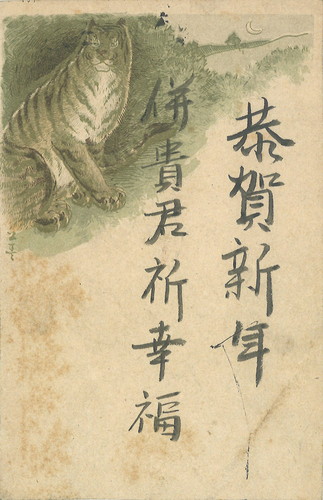 恭賀新年
併貴君祈幸福